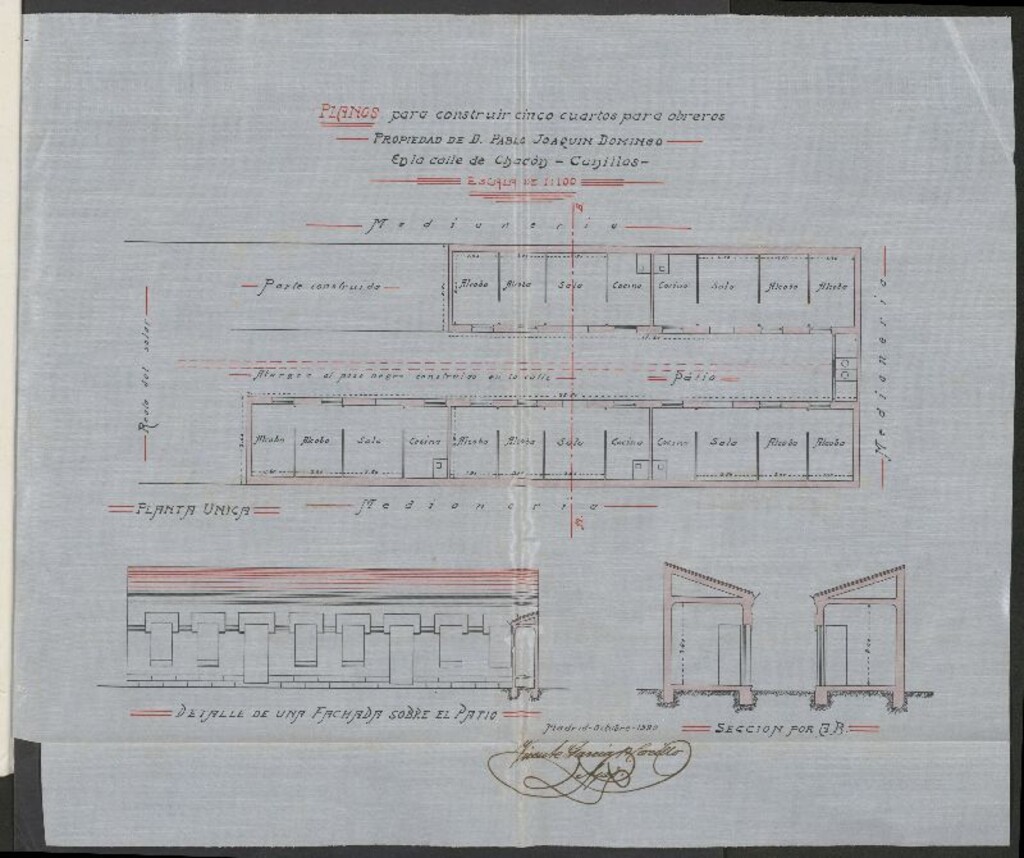 PLANOS para construir cinco cuartos para obreros
PROPIEDAD DE D. PABLO JOAQUIN DOMINGO
En la calle de Chacón - Canillas -
ESCALA DE 1:100
Medianeria
Parte construida
Alcoba Alcoba Sala Cocina Cocina Sala Alcoba Alcoba
Resto del solar
Medianeria
Atargea al pozo negro construido en la calle
Patio
Alcoba Alcoba Sala Cocina Alcoba Alcoba Sala Cocina Cocina Sala Alcoba Alcoba
PLANTA UNICA
Medianeria
DETALLE DE UNA FACHADA SOBRE EL PATIO
Madrid-Octubre-
SECCION POR A.B.